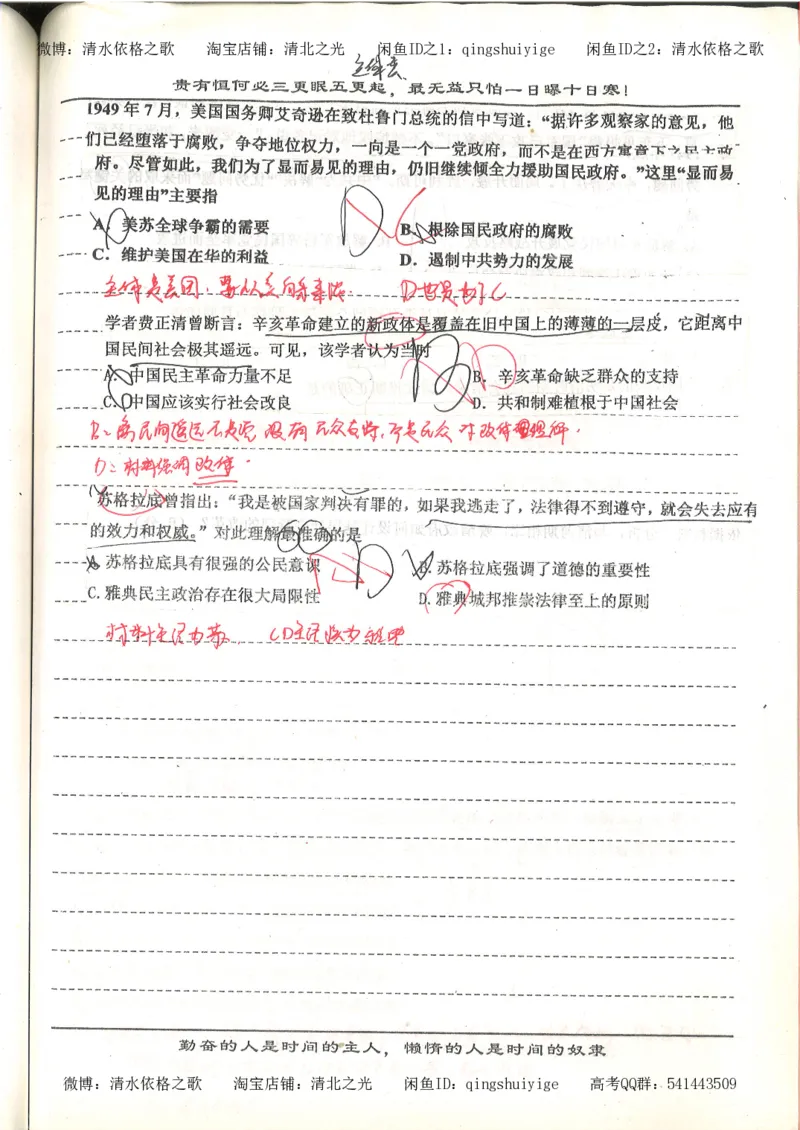 微博：清水依格之歌 淘宝店铺：清北之光 闲鱼ID之1：qingshuiyige 闲鱼ID之2：清水依格之歌
主体法
贵有恒何必三更眠五更起，最无益只怕一日曝十日寒！
1949年7月，美国国务卿艾奇逊在致杜鲁门总统的信中写道：“据许多观察家的意见，他
们已经堕落于腐败，争夺地位权力，一向是一个一党政府，而不是在西方寓意下之民主政
府。尽管如此，我们为了显而易见的理由，仍旧继续倾全力援助国民政府。”这里“显而易
见的理由”主要指
A．美苏全球争霸的需要 B．根除国民政府的腐败
C．维护美国在华的利益 D．遏制中共势力的发展
主体是美国，要从 D也是为了C
学者费正清曾断言：辛亥革命建立的新政体是覆盖在旧中国上的薄薄的一层皮，它距离中
国民间社会极其遥远。可见，该学者认为当时
A．中国民主革命力量不足 B．辛亥革命缺乏群众的支持
C．中国应该实行社会改良 D．共和制难植根于中国社会
B：离民间遥远不是说没有民众支持，不是民众对政体理解
D：材料强调政体
苏格拉底曾指出：“我是被国家判决有罪的，如果我逃走了，法律得不到遵守，就会失去应有
的效力和权威。”对此理解最准确的是
A．苏格拉底具有很强的公民意识 B．苏格拉底强调了道德的重要性
C．雅典民主政治存在很大局限性 D．雅典城邦推崇法律至上的原则
材料主体为苏， CD主体为雅典
勤奋的人是时间的主人，懒惰的人是时间的奴隶
微博：清水依格之歌 淘宝店铺：清北之光 闲鱼ID：qingshuiyige 高考QQ群：541443509